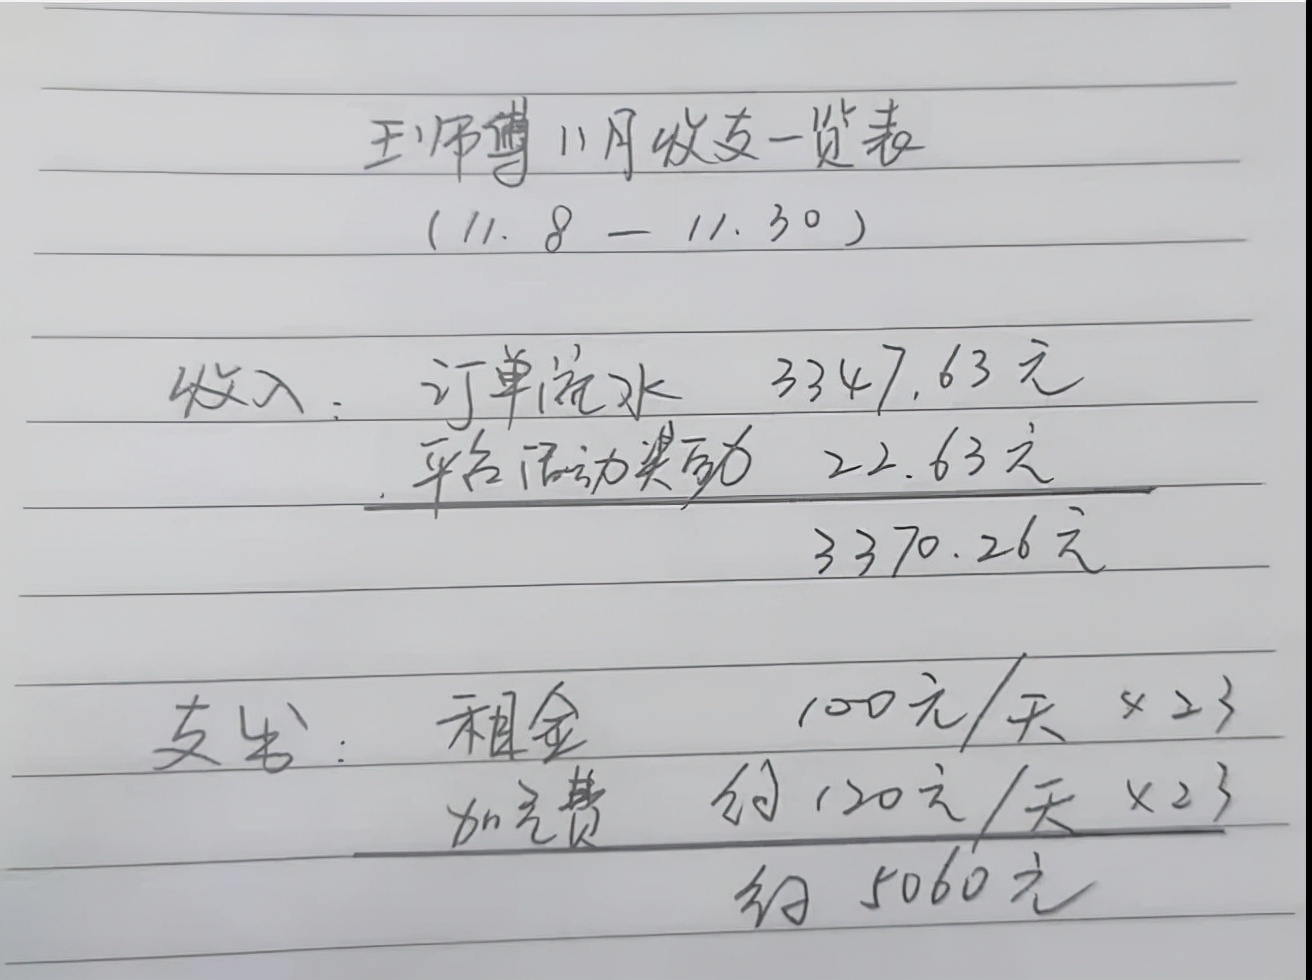 王师傅11月收支一览表
(11.8 — 11.30)
收入: 订单流水 3347.63元
平台活动奖励 22.63元
3370.26元
支出: 租金 100元/天 ×23
加充费 约120元/天 ×23
约 5060元